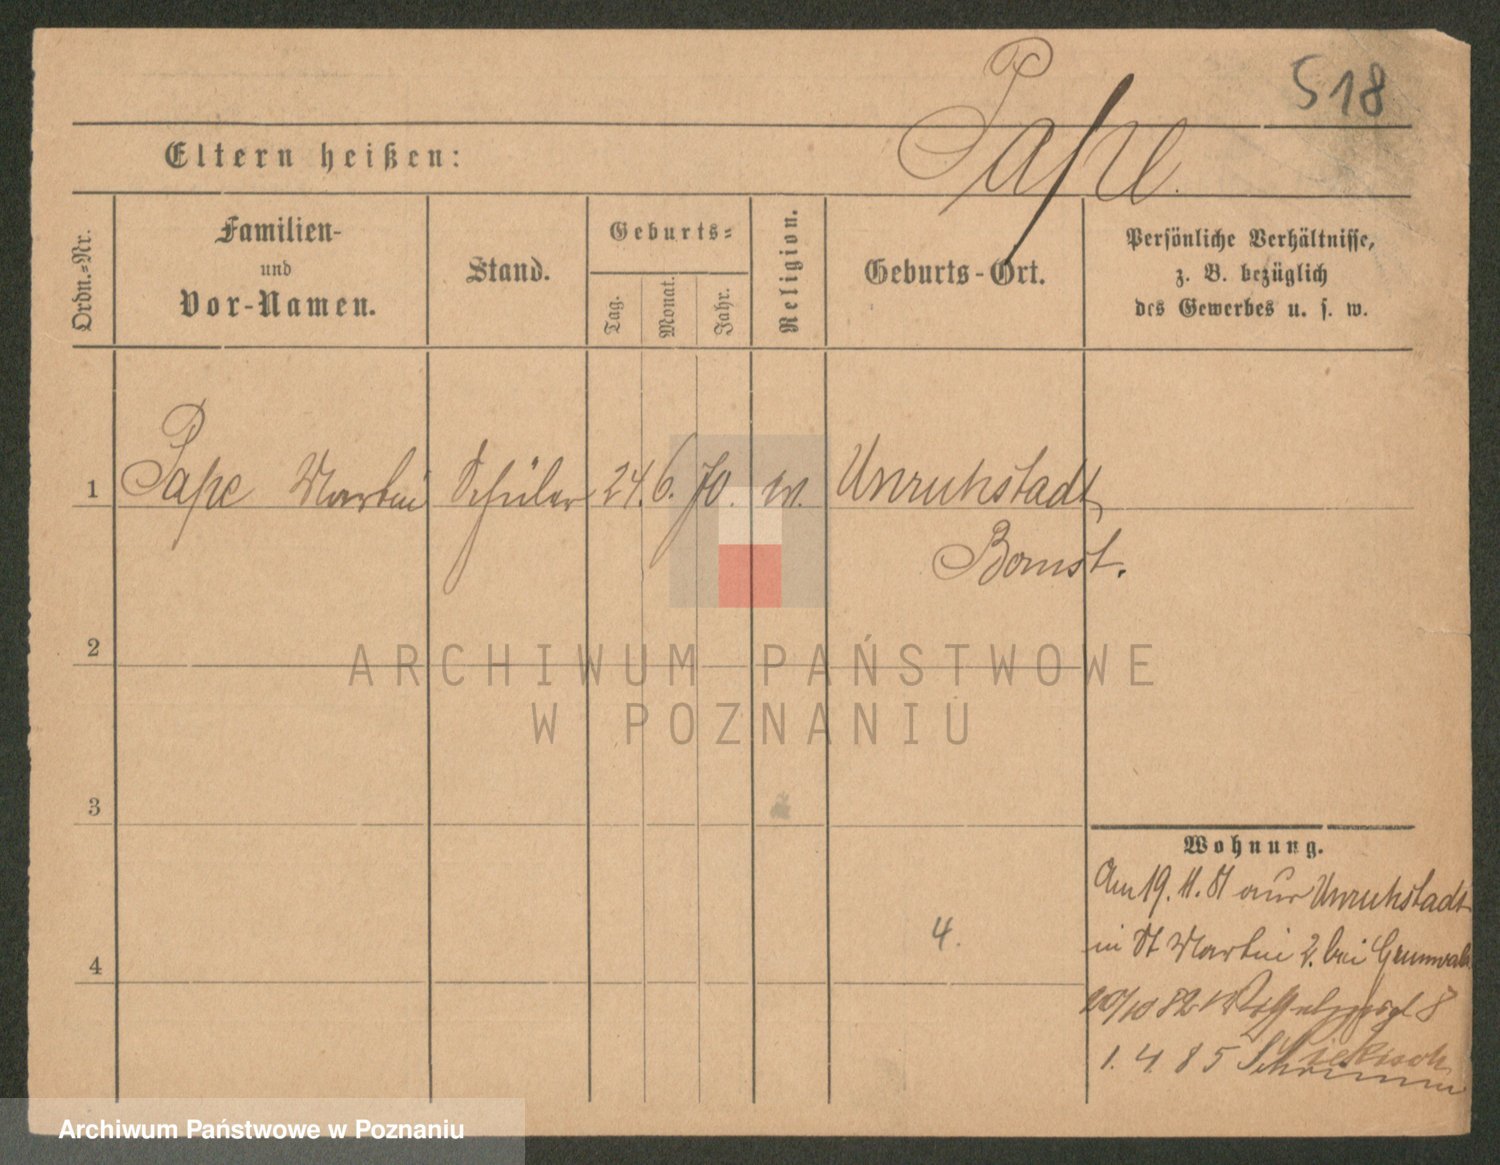 518
Pape.
Eltern heißen:
Ordn.=Nr.
Familien-
und
Vor-Namen.
Stand.
Geburts=
Tag.
Monat.
Jahr.
Religion.
Geburts-Ort.
Persönliche Verhältnisse,
z. B. bezüglich
des Gewerbes u. s. w.
1 Pape Martin Schüler 24. 6. 70. Unruhstadt
Bomst.
2
ARCHIWUM PAŃSTWOWE
W POZNANIU
3
Wohnung.
Am 19. 11. 81 aus Unruhstadt
in St Martin 2. bei Grunwald
4.
4
20/10 82 8
1. 4. 85 Schrimm
Archiwum Państwowe w Poznaniu